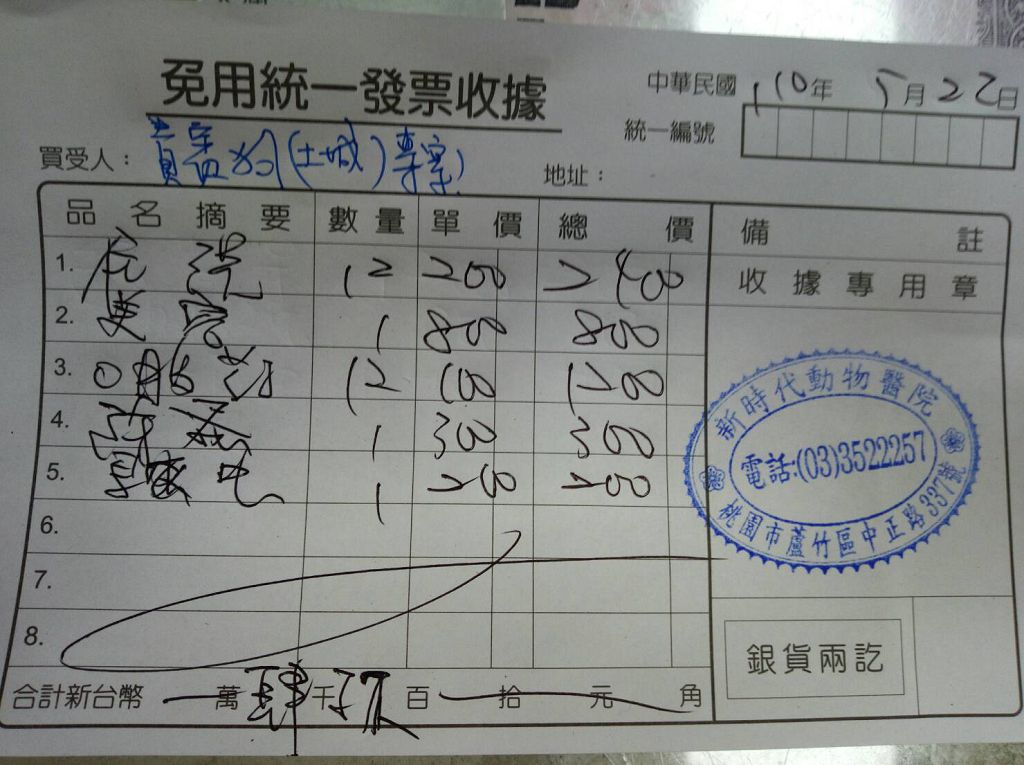 免用統一發票收據
中華民國 110年 5月22日
統一編號
買受人： (土城)專案
地址：
品名摘要 數量 單價 總價 備註
收據專用章
1. 住院 12 200 2400
2. 1 800 800
3. 口服药 12 100 1200
4. 1 300 300
5. 1 200 200
6.
7.
8.
新時代動物醫院
電話:(03)3522257
桃園市蘆竹區中正路337號
銀貨兩訖
合計新台幣 萬肆千玖百 拾 元 角